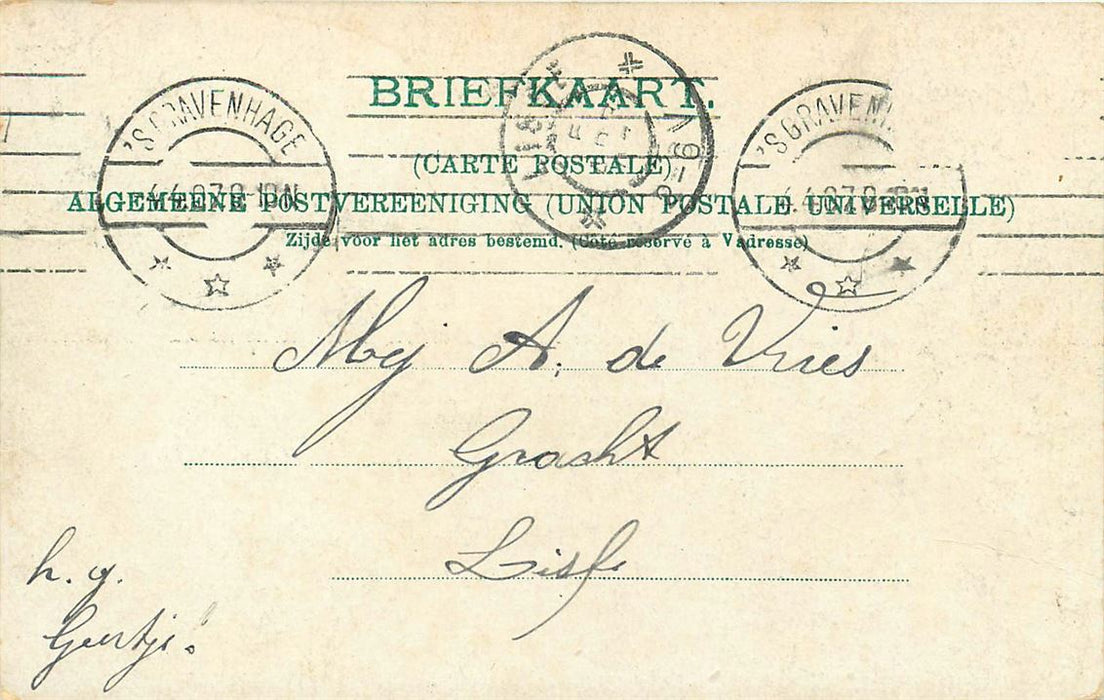 BRIEFKAART.
(CARTE POSTALE)
ALGEMEENE POSTVEREENIGING (UNION POSTALE UNIVERSELLE)
Zijde voor het adres bestemd. (Côté réservé à l'adresse)
'SGRAVENHAGE
4.4.07.8-9N
'SGRAVENH
4.07.8
Mej A. de Vries
Gracht
Lisse
h. g.
Geertje.